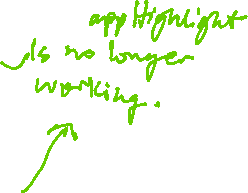 appHighlight
is no longer
working.